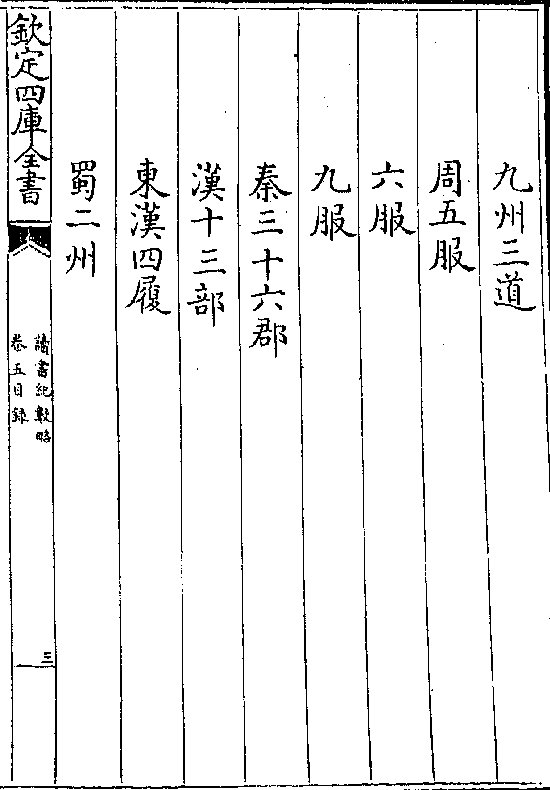 九州三道
周五服
六服
九服
秦三十六郡
漢十三部
東漢四履
蜀二州
欽定四庫全書
讀書紀數略
卷五目錄
三